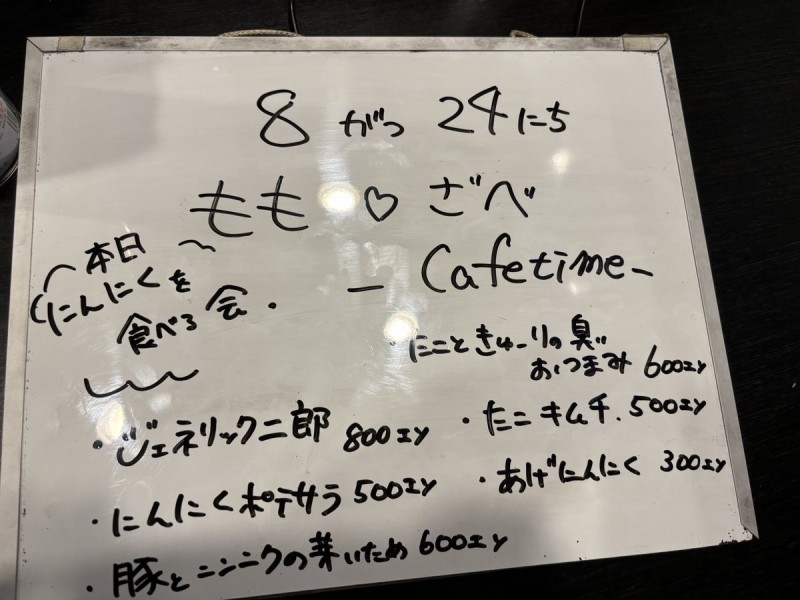 8がつ 24にち
もも♡ざべ
- Cafetime -
本日
にんにくを
食べる会.
・たこときゅーりの臭い
おつまみ 600ェy
・ジェネリック二郎 800ェy
・たこキムチ. 500ェy
・にんにくポテサラ 500ェy
・あげにんにく 300ェy
・豚とニンニクの芽いため 600ェy